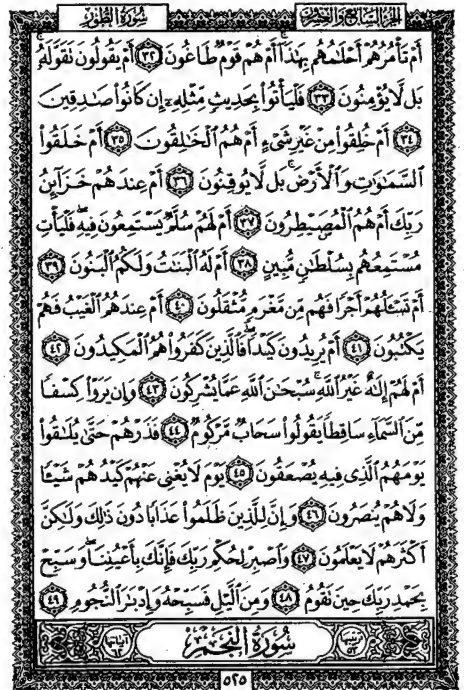 الجزء السابع والعشرون
سورة الطور
أَمْ تَأْمُرُهُمْ أَحْلَٰمُهُم بِهَٰذَآ أَمْ هُمْ قَوْمٌ طَاغُونَ ٣٢ أَمْ يَقُولُونَ تَقَوَّلَهُۥ
بَل لَّا يُؤْمِنُونَ ٣٣ فَلْيَأْتُوا۟ بِحَدِيثٍ مِّثْلِهِۦٓ إِن كَانُوا۟ صَٰدِقِينَ
٣٤ أَمْ خُلِقُوا۟ مِنْ غَيْرِ شَىْءٍ أَمْ هُمُ ٱلْخَٰلِقُونَ ٣٥ أَمْ خَلَقُوا۟
ٱلسَّمَٰوَٰتِ وَٱلْأَرْضَ بَل لَّا يُوقِنُونَ ٣٦ أَمْ عِندَهُمْ خَزَآئِنُ
رَبِّكَ أَمْ هُمُ ٱلْمُصَۣيْطِرُونَ ٣٧ أَمْ لَهُمْ سُلَّمٌ يَسْتَمِعُونَ فِيهِ فَلْيَأْتِ
مُسْتَمِعُهُم بِسُلْطَٰنٍ مُّبِينٍ ٣٨ أَمْ لَهُ ٱلْبَنَٰتُ وَلَكُمُ ٱلْبَنُونَ ٣٩
أَمْ تَسْـَٔلُهُمْ أَجْرًا فَهُم مِّن مَّغْرَمٍ مُّثْقَلُونَ ٤٠ أَمْ عِندَهُمُ ٱلْغَيْبُ فَهُمْ
يَكْتُبُونَ ٤١ أَمْ يُرِيدُونَ كَيْدًا فَٱلَّذِينَ كَفَرُوا۟ هُمُ ٱلْمَكِيدُونَ ٤٢
أَمْ لَهُمْ إِلَٰهٌ غَيْرُ ٱللَّهِ سُبْحَٰنَ ٱللَّهِ عَمَّا يُشْرِكُونَ ٤٣ وَإِن يَرَوْا۟ كِسْفًا
مِّنَ ٱلسَّمَآءِ سَاقِطًا يَقُولُوا۟ سَحَابٌ مَّرْكُومٌ ٤٤ فَذَرْهُمْ حَتَّىٰ يُلَٰقُوا۟
يَوْمَهُمُ ٱلَّذِى فِيهِ يُصْعَقُونَ ٤٥ يَوْمَ لَا يُغْنِى عَنْهُمْ كَيْدُهُمْ شَيْـًٔا
وَلَا هُمْ يُنصَرُونَ ٤٦ وَإِنَّ لِلَّذِينَ ظَلَمُوا۟ عَذَابًا دُونَ ذَٰلِكَ وَلَٰكِنَّ
أَكْثَرَهُمْ لَا يَعْلَمُونَ ٤٧ وَٱصْبِرْ لِحُكْمِ رَبِّكَ فَإِنَّكَ بِأَعْيُنِنَا وَسَبِّحْ
بِحَمْدِ رَبِّكَ حِينَ تَقُومُ ٤٨ وَمِنَ ٱلَّيْلِ فَسَبِّحْهُ وَإِدْبَٰرَ ٱلنُّجُومِ ٤٩
سُورَةُ النَّجْمِ
٥٢٥